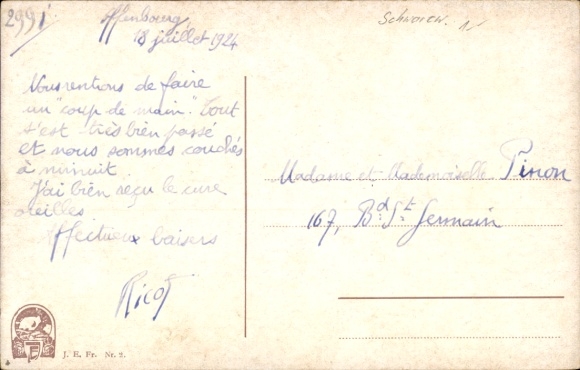 2991
Schwarw.
Offenbourg
18 juillet 1924
Nous rentions de faire
un "coup de main". Tout
s'est très bien passé
et nous sommes couchés
à minuit
J'ai bien reçu le cure
oreilles
Affectueux baisers
Ricot
Madame et Mademoiselle Pinon
167, Bd St Germain
J. E. Fr. Nr. 2.